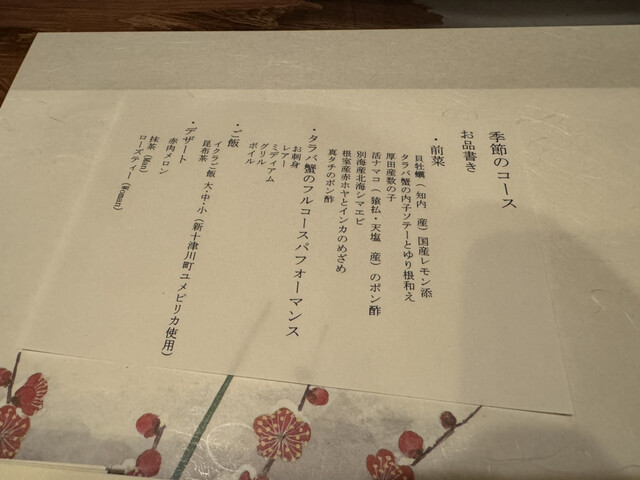 季節のコース
お品書き
・前菜
貝牡蠣（知内 産）国産レモン添
タラバ蟹の内子ソテーとゆり根和え
厚田産数の子
活ナマコ（猿払・天塩 産）のポン酢
別海産北海シマエビ
根室産赤ホヤとインカのめざめ
真タチのポン酢
・タラバ蟹のフルコースパフォーマンス
お刺身
レアー
ミディアム
グリル
ボイル
・ご飯
イクラご飯 大・中・小（新十津川町ユメピリカ使用）
昆布茶
・デザート
赤肉メロン
抹茶（Man）
ローズティー（Woman）